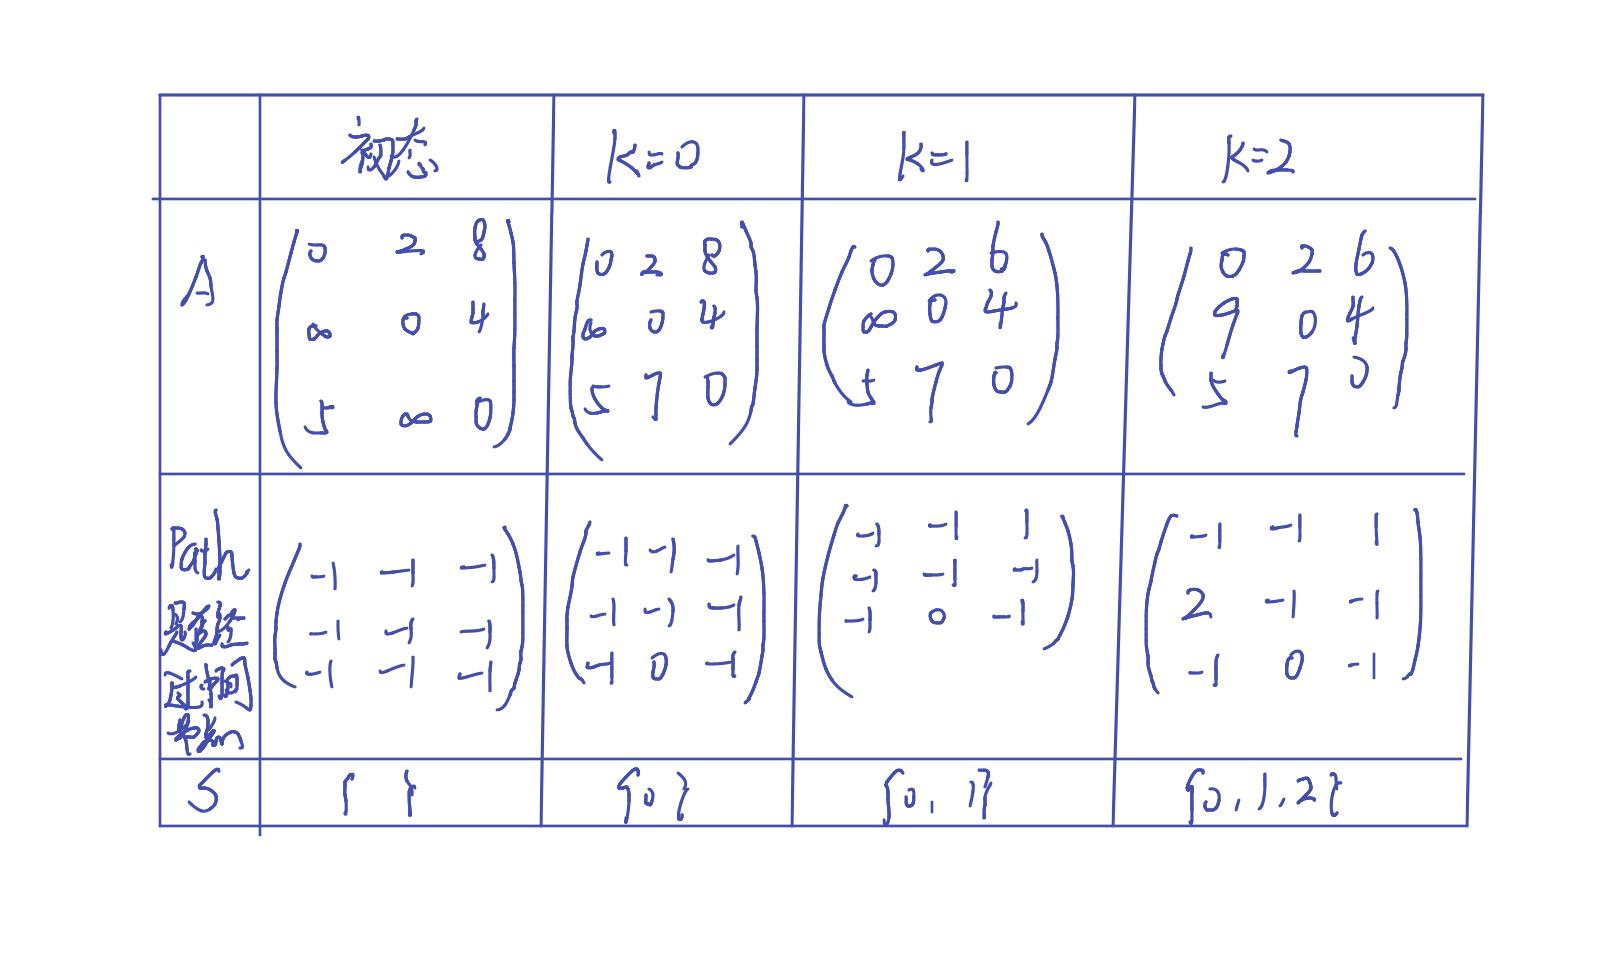 初态 K=0 K=1 K=2
A
0 2 8
∞ 0 4
5 ∞ 0
0 2 8
∞ 0 4
5 7 0
0 2 6
∞ 0 4
5 7 0
0 2 6
9 0 4
5 7 0
Path
是否经
过中间
节点
-1 -1 -1
-1 -1 -1
-1 -1 -1
-1 -1 -1
-1 -1 -1
-1 0 -1
-1 -1 1
-1 -1 -1
-1 0 -1
-1 -1 1
2 -1 -1
-1 0 -1
S { } {0} {0, 1} {0,1,2}